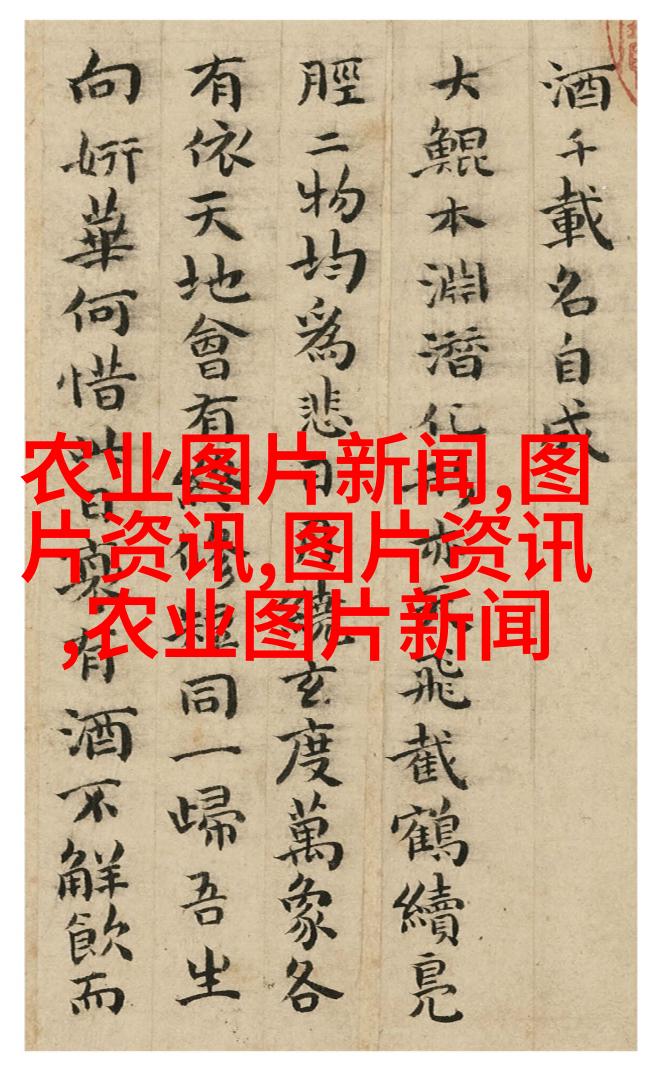 酒千載名自成
大鯤本淵潛化亦飛截鶴續鳧
脛二物均爲悲日月繞玄度萬象各
有依天地會有終修短同一歸吾生
向妍華何惜此日有酒不解飲而
农业图片新闻,图
片资讯,图片资讯
,农业图片新闻